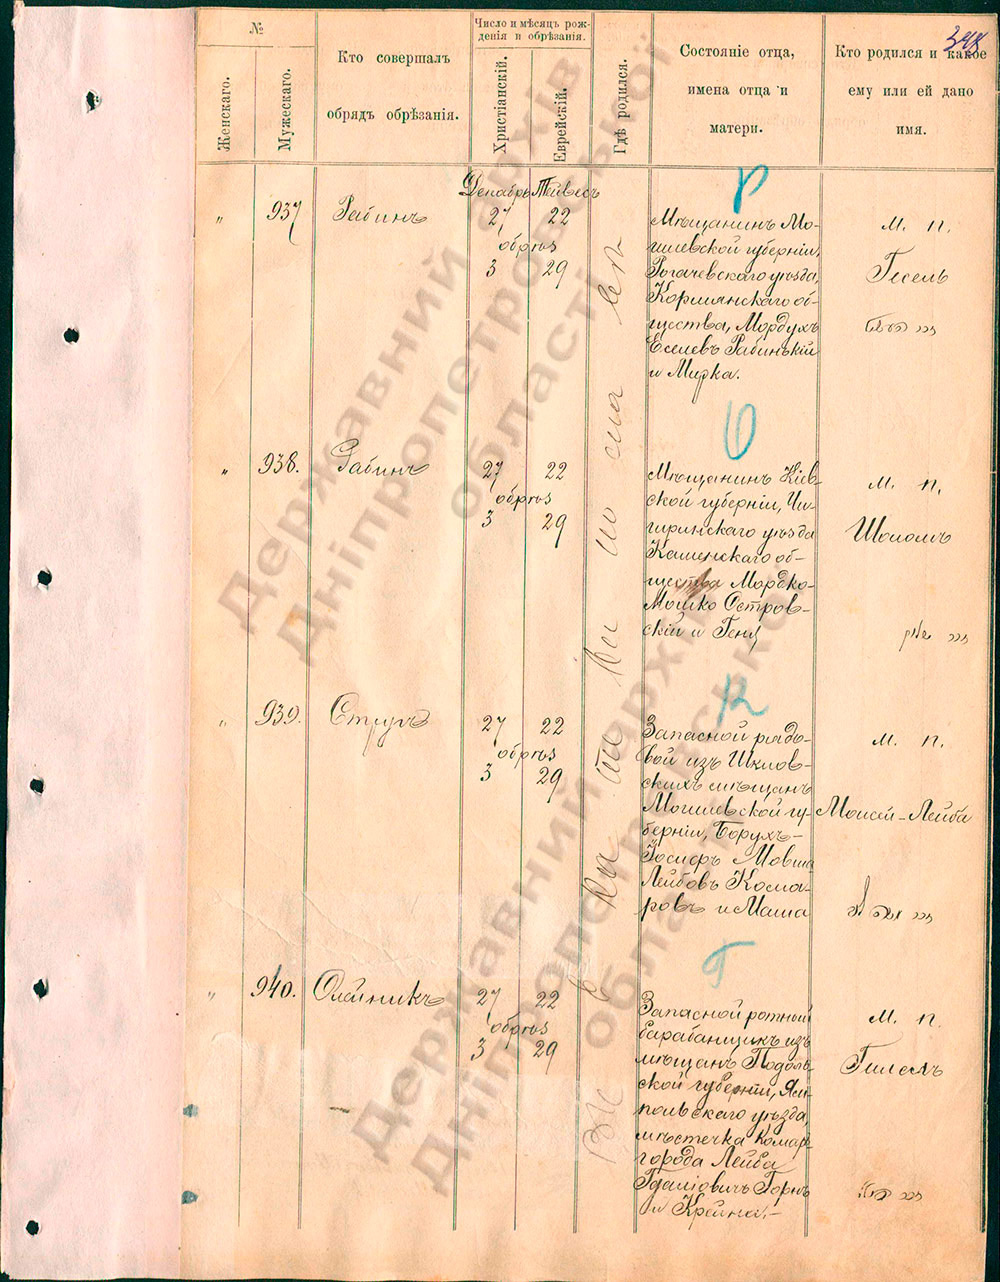 348
№
Женскаго.
Мужескаго.
Кто совершалъ
обрядъ обрѣзанія.
Число и мѣсяцъ рож-
денія и обрѣзанія.
Христіанскій.
Еврейскій.
Гдѣ родился.
Состояніе отца,
имена отца и
матери.
Кто родился и какое
ему или ей дано
имя.
Декабрь Тейвесъ
Р
„ 937 Рабинъ 27 22
обрѣз
3 29
Мѣщанинъ Мо-
гилевской губерніи,
Рогачевскаго уѣзда,
Кормянскаго об-
щества, Мордухъ
Еселевъ Рабинькій
и Мирка.
м. п.
Гесель
О
„ 938. Рабинъ 27 22
обрѣз
3 29
Мѣщанинъ Кіев-
ской губерніи, Чи-
гиринскаго уѣзда
Каменскаго об-
щества Мордко-
Мошко Островс-
скій и Геня
м. п.
Шоломъ
К
„ 939. Струпъ 27 22
обрѣз
3 29
Запасной рядо-
вой изъ Шклов-
скихъ мѣщанъ
Могилевской гу-
берніи, Борухъ-
Іосифъ Мовша
Лейбовъ Кома-
ровъ и Маша
м. п.
Моисей-Лейба
Г
„ 940. Олейникъ 27 22
обрѣз
3 29
Запасной ротный
барабанщикъ изъ
мѣщанъ Подоль-
ской губерніи, Ям-
польскаго уѣзда,
мѣстечка Комар-
города Лейба
Гдаліовичъ Горнъ
и Крейна.-
м. п.
Гилель
Державний архів
Дніпропетровської
області
Державний архів
Дніпропетровської
області